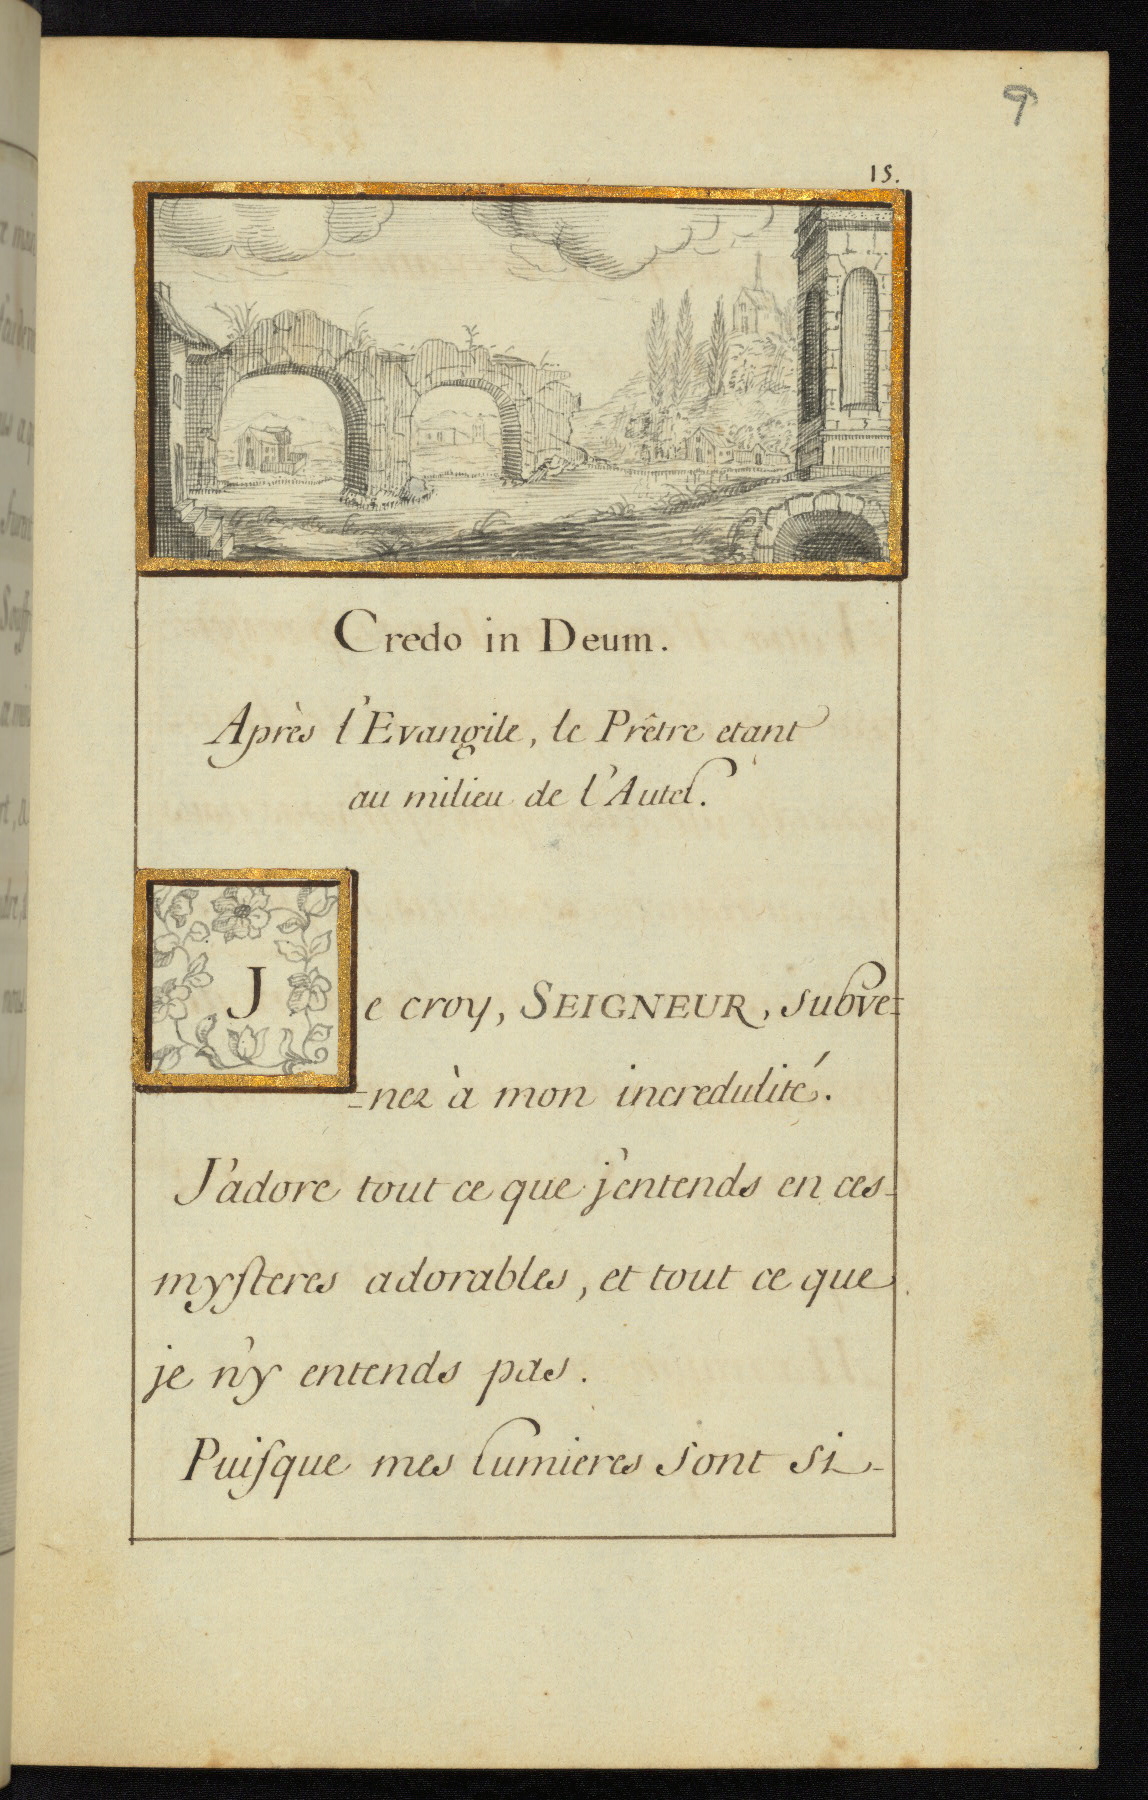 9
15.
Credo in Deum.
Après l'Evangile, le Prêtre etant
au milieu de l'Autel.
Je croy, SEIGNEUR, subve=
=nez à mon incredulité.
J'adore tout ce que j'entends en ces
myſteres adorables, et tout ce que
je n'y entends pas.
Puiſque mes lumieres sont si